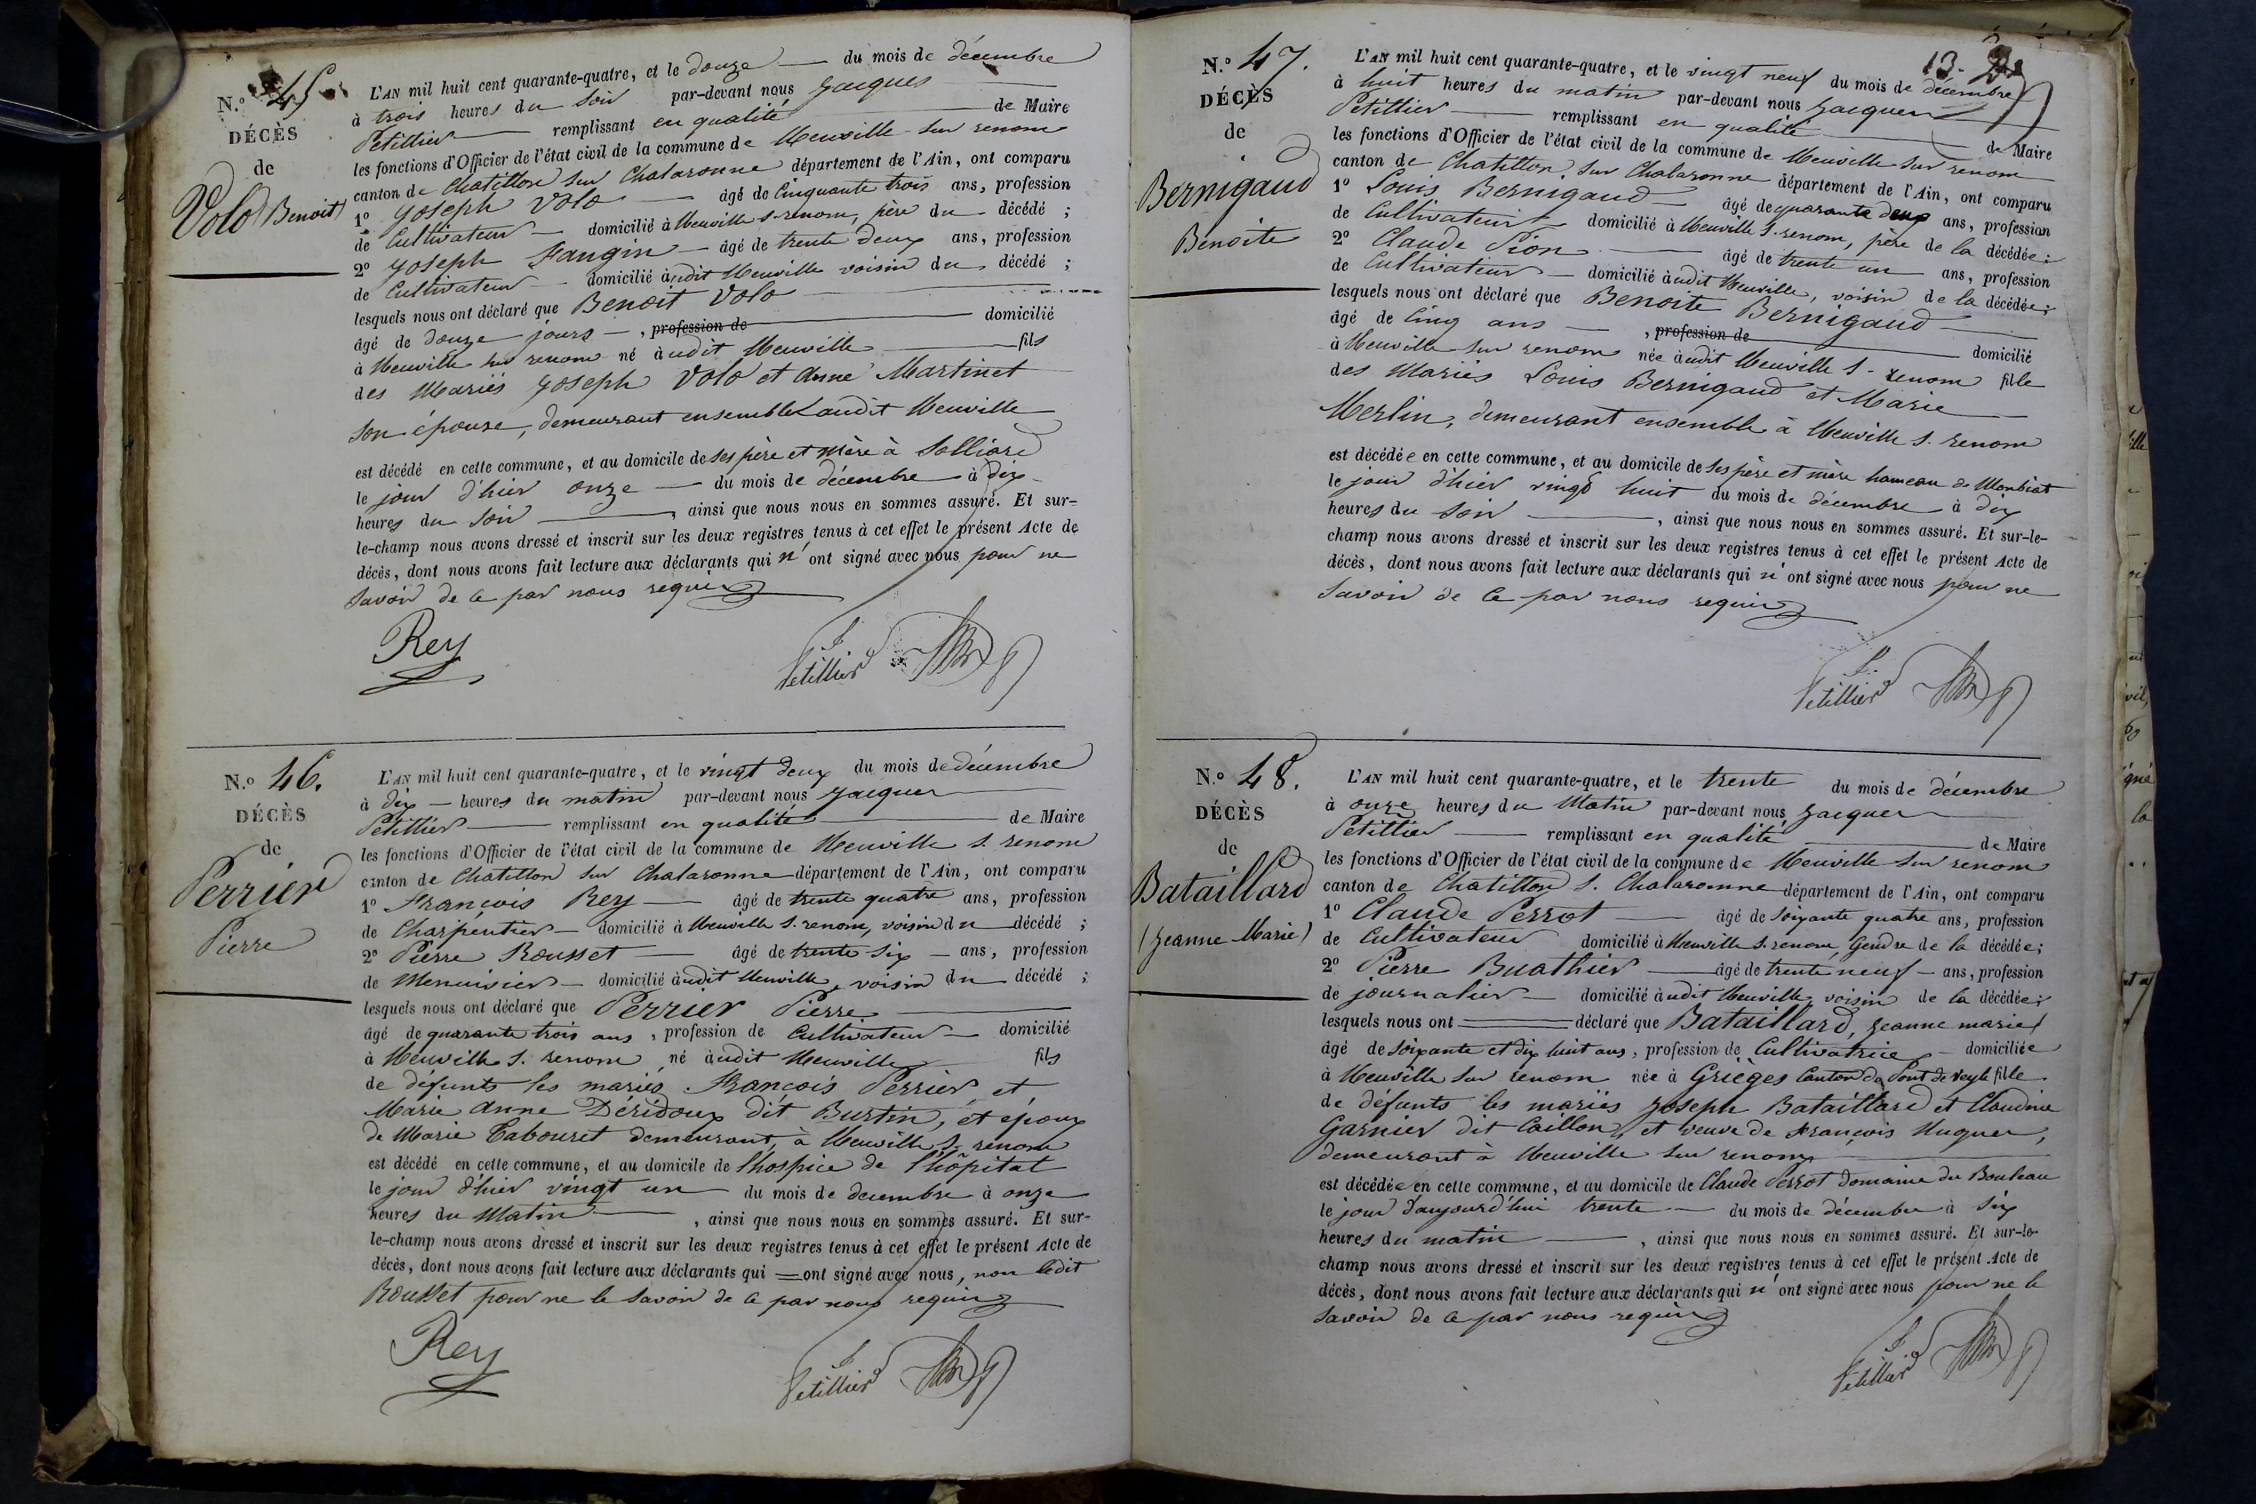 N.° 45.
DÉCÈS
de
Volo Benoit
L'AN mil huit cent quarante-quatre, et le douze du mois de décembre
à trois heures du soir par-devant nous Jacques
Petillier remplissant en qualité de Maire
les fonctions d'Officier de l'état civil de la commune de Neuville sur renom
canton de Chatillon sur Chalaronne département de l'Ain, ont comparu
1° Joseph Volo âgé de Cinquante trois ans, profession
de Cultivateur domicilié à Neuville s. renom, père du décédé ;
2° Joseph Fangin âgé de trente deux ans, profession
de Cultivateur domicilié audit Neuville voisin du décédé ;
lesquels nous ont déclaré que Benoit Volo
âgé de douze jours, profession de domicilié
à Neuville sur renom né audit Neuville fils
des Mariés Joseph Volo et Anne Martinet
son épouse, demeurant ensemble audit Neuville
est décédé en cette commune, et au domicile de ses père et mère à Solliard
le jour d'hier onze du mois de décembre à dix
heures du soir, ainsi que nous nous en sommes assuré. Et sur-
le-champ nous avons dressé et inscrit sur les deux registres tenus à cet effet le présent Acte de
décès, dont nous avons fait lecture aux déclarants qui n'ont signé avec nous pour ne
savoir de ce par nous requis
Rey
Petillier
N.° 46.
DÉCÈS
de
Perrier
Pierre
L'AN mil huit cent quarante-quatre, et le vingt deux du mois de décembre
à dix heures du matin par-devant nous Jacques
Petillier remplissant en qualité de Maire
les fonctions d'Officier de l'état civil de la commune de Neuville s. renom
canton de Chatillon sur Chalaronne département de l'Ain, ont comparu
1° François Rey âgé de trente quatre ans, profession
de Charpentier domicilié à Neuville s. renom, voisin du décédé ;
2° Pierre Rousset âgé de trente six ans, profession
de Menuisier domicilié audit Neuville, voisin du décédé ;
lesquels nous ont déclaré que Perrier Pierre
âgé de quarante trois ans, profession de Cultivateur domicilié
à Neuville s. renom, né audit Neuville fils
de défunts les mariés François Perrier et
Marie Anne Déridoux dit Burtin, et époux
de Marie Tabouret demeurant à Neuville s. renom
est décédé en cette commune, et au domicile de l'hospice de l'hôpital
le jour d'hier vingt un du mois de décembre à onze
heures du Matin, ainsi que nous nous en sommes assuré. Et sur-
le-champ nous avons dressé et inscrit sur les deux registres tenus à cet effet le présent Acte de
décès, dont nous avons fait lecture aux déclarants qui ont signé avec nous, non ledit
Rousset pour ne le savoir de ce par nous requis
Rey
Petillier
13.
N.° 47.
DÉCÈS
de
Bernigaud
Benoite
L'AN mil huit cent quarante-quatre, et le vingt neuf du mois de décembre
à huit heures du matin par-devant nous Jacques
Petillier remplissant en qualité de Maire
les fonctions d'Officier de l'état civil de la commune de Neuville sur renom
canton de Chatillon sur Chalaronne département de l'Ain, ont comparu
1° Louis Bernigaud âgé de quarante deux ans, profession
de Cultivateur domicilié à Neuville s. renom, père de la décédée ;
2° Claude Pion âgé de trente un ans, profession
de Cultivateur domicilié audit Neuville, voisin de la décédée ;
lesquels nous ont déclaré que Benoite Bernigaud
âgé de Cinq ans, profession de domicilié
à Neuville sur renom née audit Neuville s. renom fille
des Mariés Louis Bernigaud et Marie
Merlin, demeurant ensemble à Neuville s. renom
est décédée en cette commune, et au domicile de ses père et mère hameau de Monbiat
le jour d'hier vingt huit du mois de décembre à dix
heures du soir, ainsi que nous nous en sommes assuré. Et sur-le-
champ nous avons dressé et inscrit sur les deux registres tenus à cet effet le présent Acte de
décès, dont nous avons fait lecture aux déclarants qui n'ont signé avec nous pour ne
savoir de ce par nous requis
Petillier
N.° 48.
DÉCÈS
de
Bataillard
(Jeanne Marie)
L'AN mil huit cent quarante-quatre, et le trente du mois de décembre
à onze heures du Matin par-devant nous Jacques
Petillier remplissant en qualité de Maire
les fonctions d'Officier de l'état civil de la commune de Neuville sur renom
canton de Chatillon s. Chalaronne département de l'Ain, ont comparu
1° Claude Perrot âgé de soixante quatre ans, profession
de Cultivateur domicilié à Neuville s. renom, Gendre de la décédée ;
2° Pierre Buathier âgé de trente neuf ans, profession
de journalier domicilié audit Neuville, voisin de la décédée ;
lesquels nous ont déclaré que Bataillard, Jeanne marie
âgé de soixante et dix huit ans, profession de Cultivatrice domiciliée
à Neuville sur renom née à Grièges Canton de Pont de Veyle fille
de défunts les mariés Joseph Bataillard et Claudine
Garnier dit Caillon, et veuve de François Huguer,
demeurant à Neuville sur renom
est décédée en cette commune, et au domicile de Claude Perrot domaine du Bouleau
le jour d'aujourd'hui trente du mois de décembre à six
heures du matin, ainsi que nous nous en sommes assuré. Et sur-le-
champ nous avons dressé et inscrit sur les deux registres tenus à cet effet le présent Acte de
décès, dont nous avons fait lecture aux déclarants qui n'ont signé avec nous pour ne le
savoir de ce par nous requis
Petillier